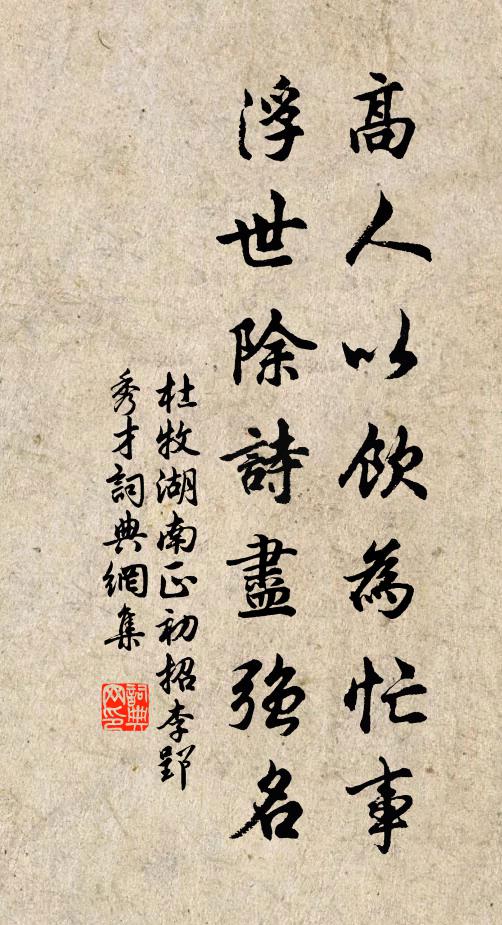 高人以飲為忙事
浮世除詩盡強名
杜牧湖南正初招李郢
秀才詞典網集
詞典
网印